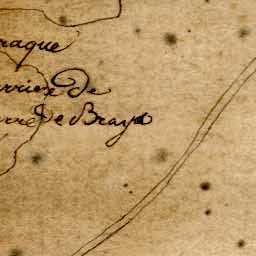 raque
rrière de
rre de Braye